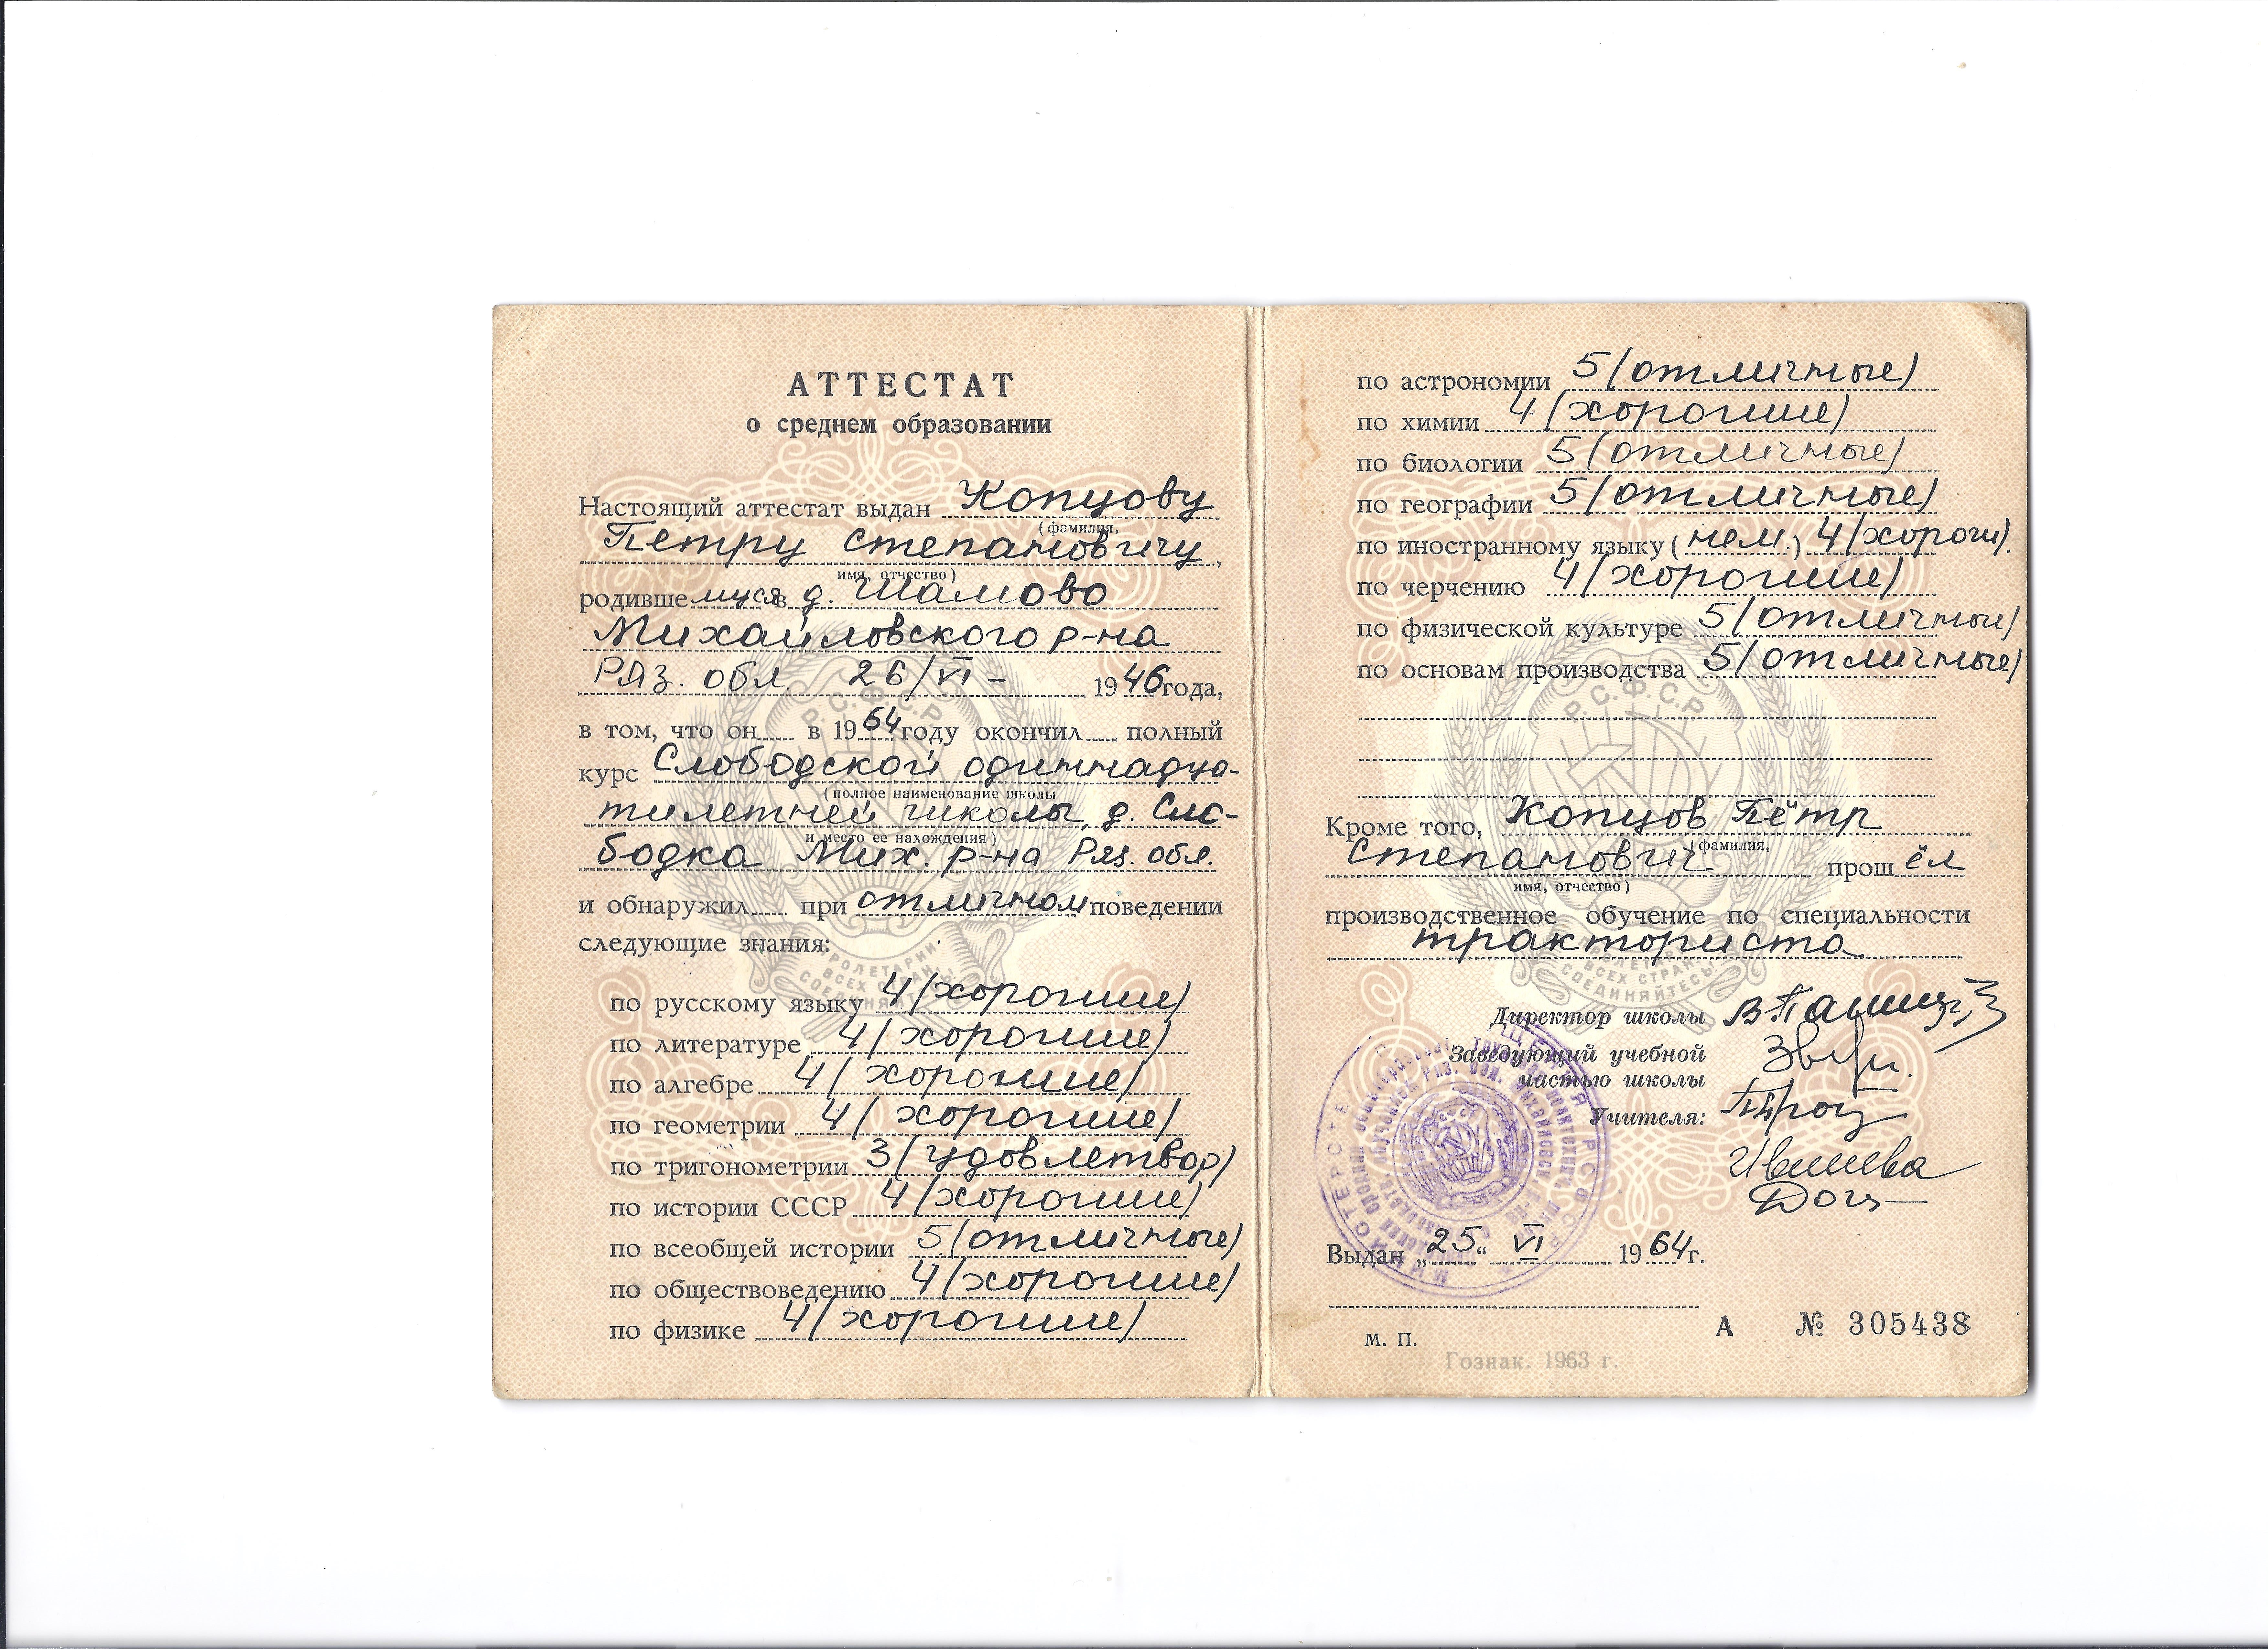 АТТЕСТАТ
о среднем образовании
Настоящий аттестат выдан Копцову
(фамилия,
Петру Степановичу,
имя, отчество)
родившемуся в д. Шамово
Михайловского р-на
Ряз. обл. 26/VI - 1946 года,
в том, что он в 1964 году окончил полный
курс Слободской одиннадца-
(полное наименование школы
тилетней школы, д. Сло-
и место ее нахождения)
бодка Мих. р-на Ряз. обл.
и обнаружил при отличном поведении
следующие знания:
по русскому языку 4 (хорошие)
по литературе 4 (хорошие)
по алгебре 4 (хорошие)
по геометрии 4 (хорошие)
по тригонометрии 3 (удовлетвор)
по истории СССР 4 (хорошие)
по всеобщей истории 5 (отличные)
по обществоведению 4 (хорошие)
по физике 4 (хорошие)
по астрономии 5 (отличные)
по химии 4 (хорошие)
по биологии 5 (отличные)
по географии 5 (отличные)
по иностранному языку (нем.) 4 (хорош).
по черчению 4 (хорошие)
по физической культуре 5 (отличные)
по основам производства 5 (отличные)
Р.С.Ф.С.Р.
Кроме того, Копцов Пётр
(фамилия,
Степанович прошёл
имя, отчество)
производственное обучение по специальности
тракториста
ПРОЛЕТАРИИ
ВСЕХ СТРАН,
СОЕДИНЯЙТЕСЬ!
Директор школы
Заведующий учебной
частью школы
Учителя:
Выдан „25“ VI 1964 г.
А № 305438
М. П.
Гознак. 1963 г.